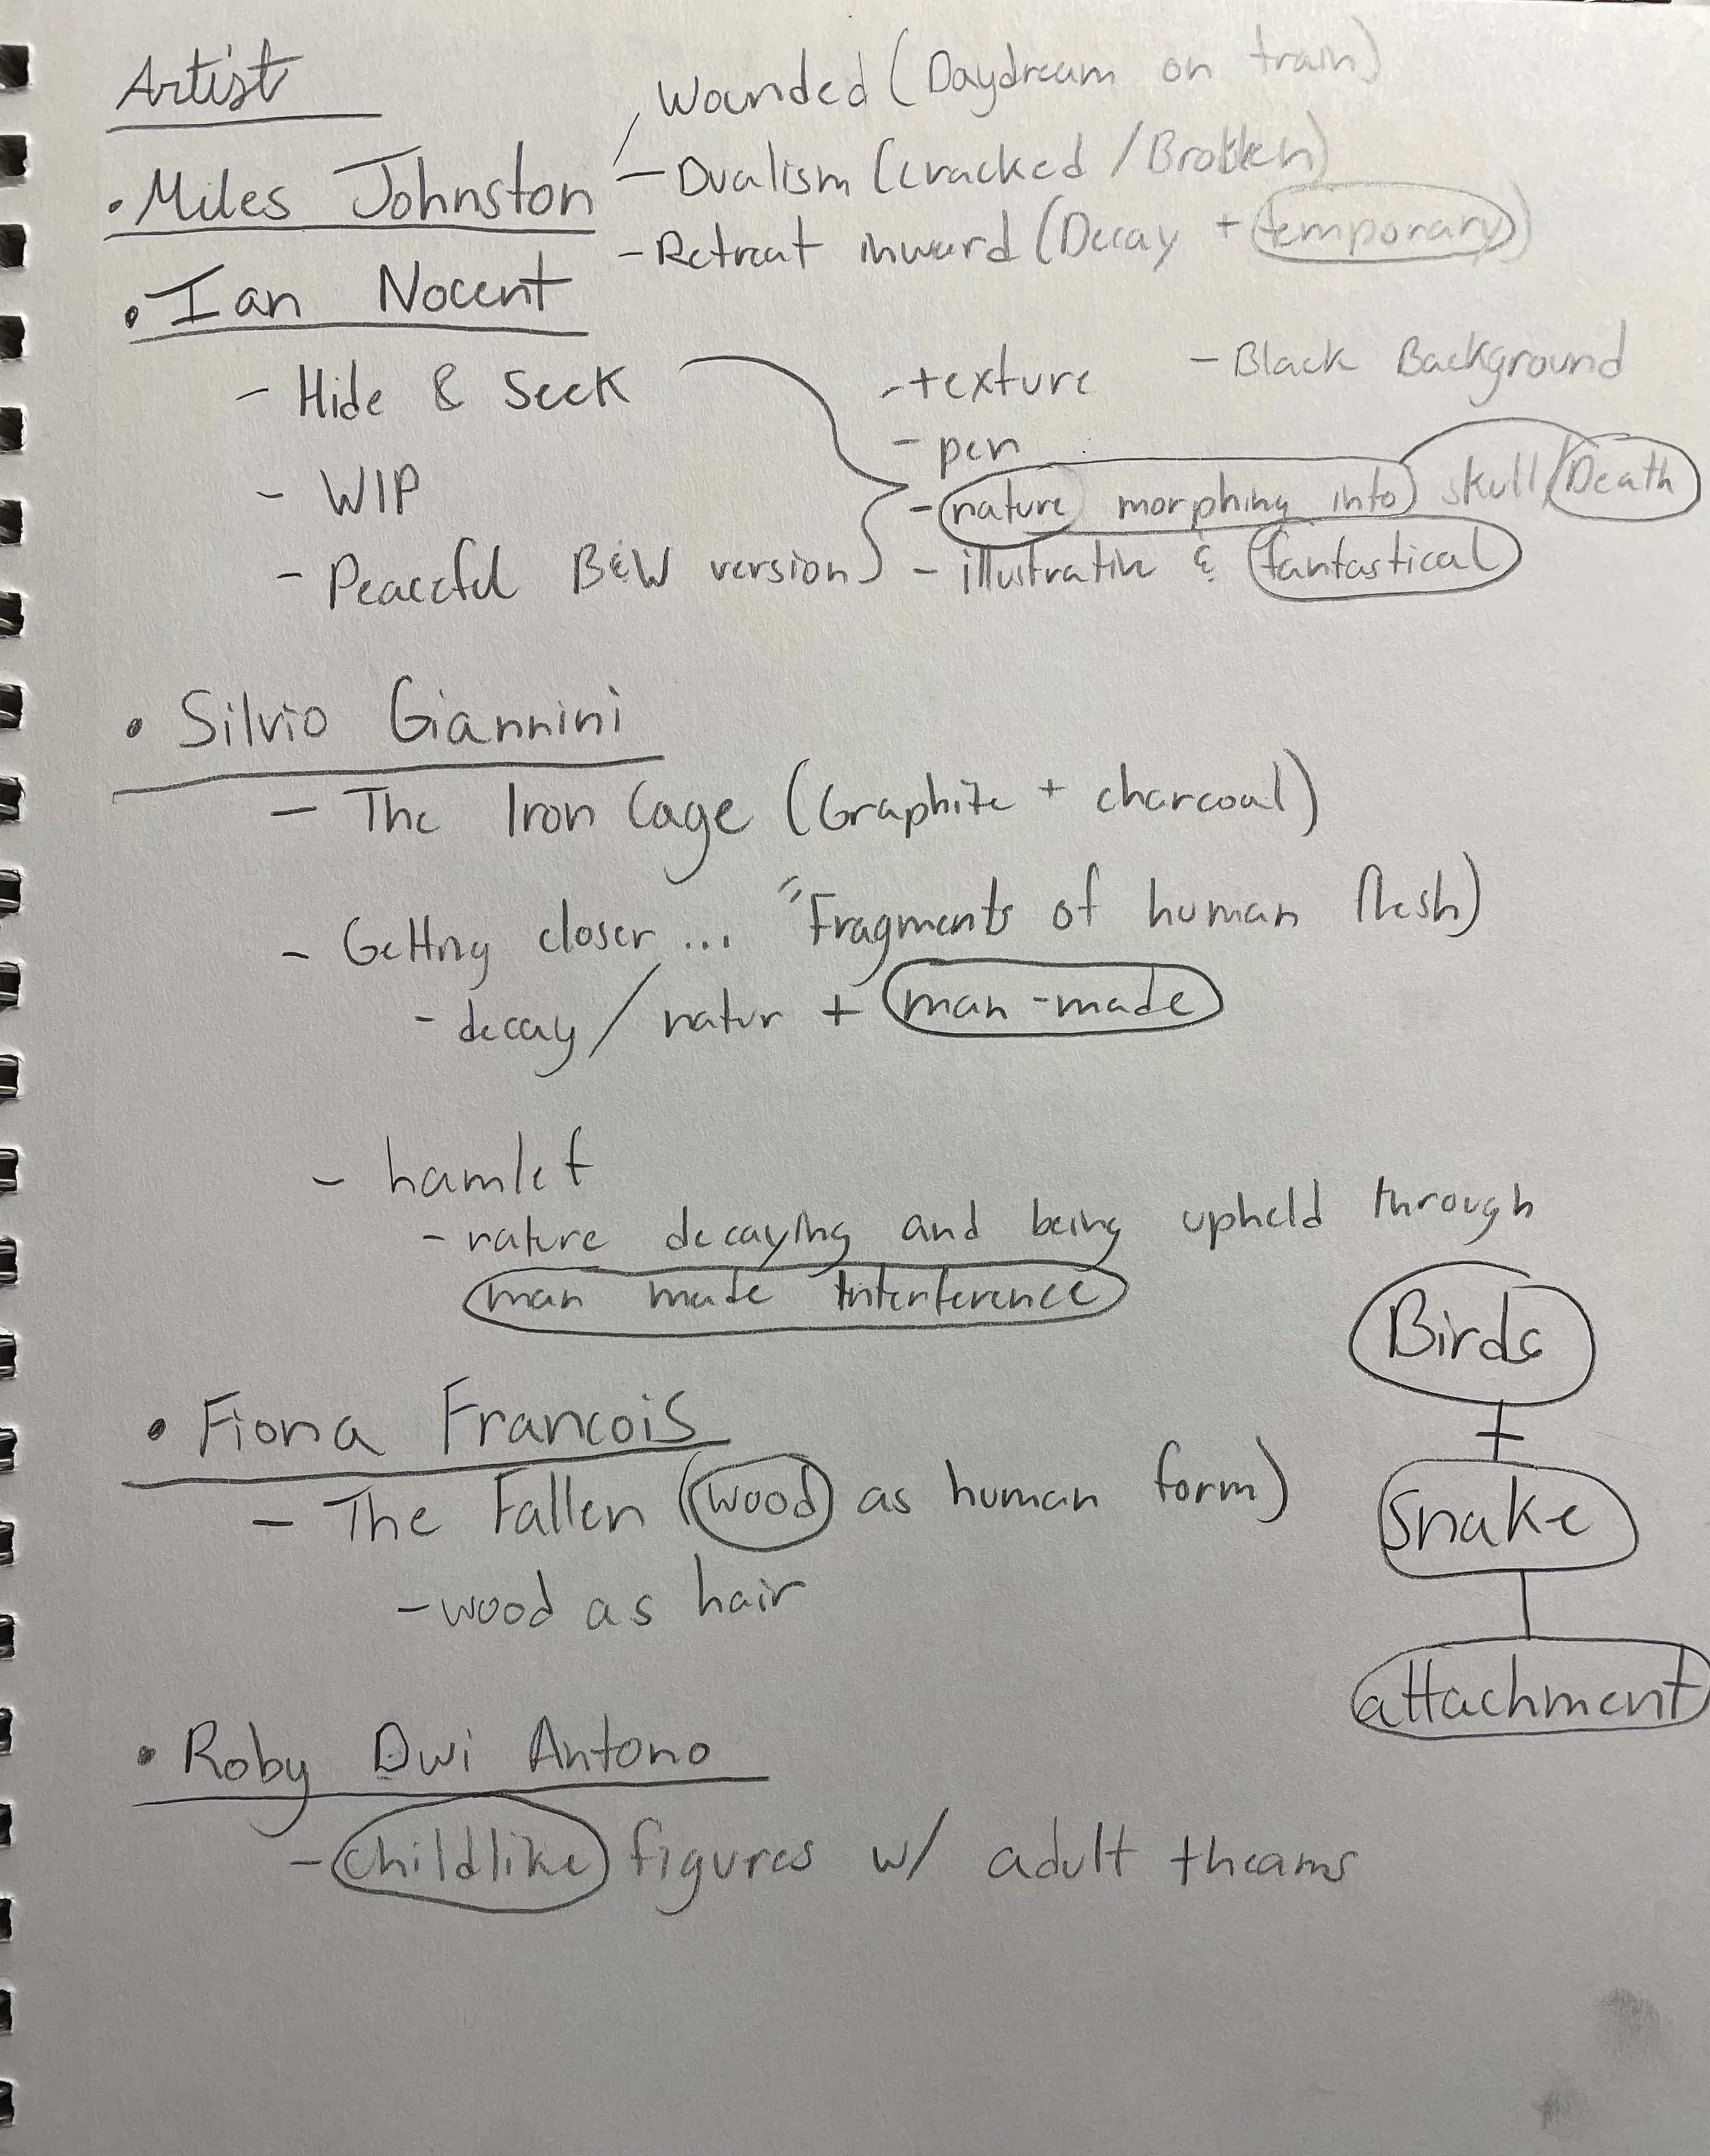 Artist
• Miles Johnston
Wounded (Daydream on train)
- Dualism (cracked / Broken)
- Retreat inward (Decay + temporary)
• Ian Nocent
- Hide & Seek
- WIP
- Peaceful B&W version
- texture
- Black Background
- pen
- nature morphing into skull/Death
- illustrative & fantastical
• Silvio Giannini
- The Iron Cage (Graphite + charcoal)
- Getting closer ... "Fragments of human flesh)
- decay / natur + man-made
- hamlet
- nature decaying and being upheld through
man made interference
• Fiona Francois
- The Fallen (wood as human form)
- wood as hair
Birds
+
Snake
attachment
• Roby Dwi Antono
- childlike figures w/ adult theams